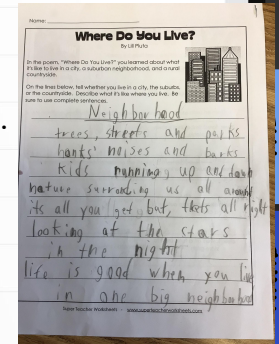 Name:
Where Do You Live?
By Lill Pluta
In the poem, "Where Do You Live?" you learned about what
it's like to live in a city, a suburban neighborhood, and a rural
countryside.
On the lines below, tell whether you live in a city, the suburbs,
or the countryside. Describe what it's like where you live. Be
sure to use complete sentences.
Neighborhood
trees, streets and parks
honts' noises and barks
kids running up and down
nature surronding us all around
its all you get but, thats all right
looking at the stars
in the night
life is good when you live
in one big neighborhood
Super Teacher Worksheets - www.superteacherworksheets.com